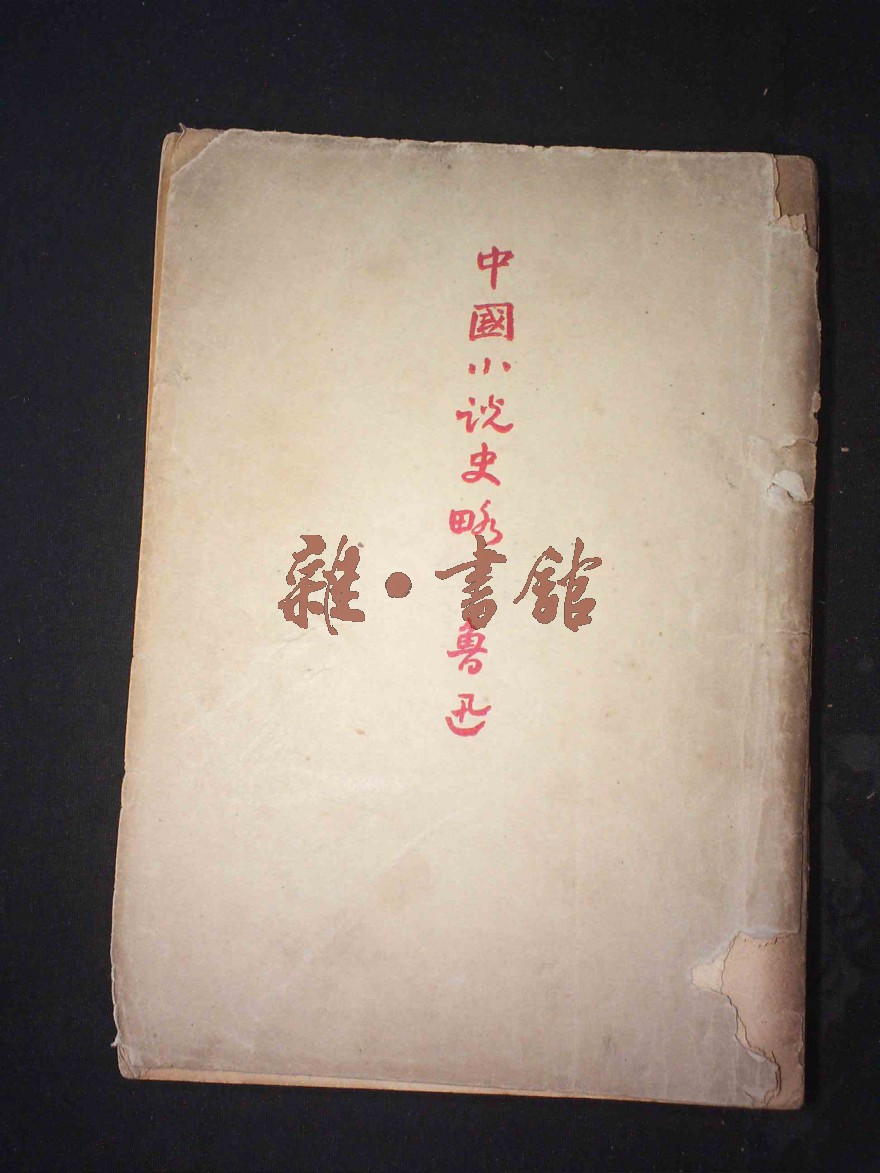 中國小説史略
魯迅
雜·書舘